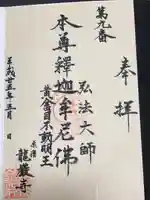 奉拝
第九番
弘法大師
本尊釋迦牟尼佛
黄金目不動明王
龍巖寺
平成廿五年五月 日